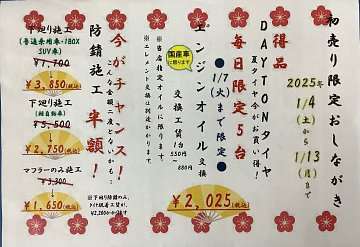 初売り限定おしながき
2025年
1/4(土)から
1/13(月)まで
得品
DAYTONタイヤ
夏タイヤ今がお買い得!
毎日限定5台
●1/7(火)まで限定●
国産車に限ります
エンジンオイル交換
交換工賃1台
550円~
880円
¥2,025(税込)
※当店指定オイルに限ります。
※エレメント交換は別途かかります。
今がチャンス!
こんな金額二度とないかも…
防錆施工 半額!
下廻り施工
(普通乗用車・1BOX
SUV車)
¥7,700
¥3,850(税込)
下廻り施工
(軽自動車)
¥5,500
¥2,750(税込)
マフラーのみ施工
¥3,300
¥1,650(税込)
※下廻り防錆のみ、
タイヤ脱着工賃が、
¥2,200かかります